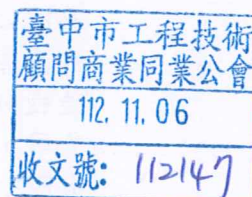 臺中市工程技術
顧問商業同業公會
112.11.06
收文號: 112147